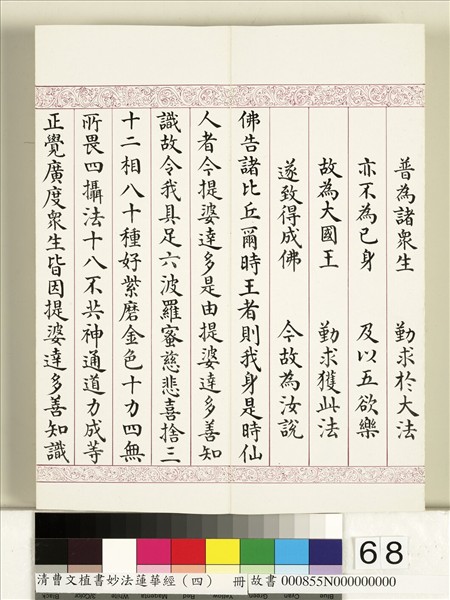 普為諸衆生　勤求於大法
亦不為己身　及以五欲樂
故為大國王　勤求獲此法
遂致得成佛　今故為汝說
佛告諸比丘爾時王者則我身是時仙
人者今提婆達多是由提婆達多善知
識故令我具足六波羅蜜慈悲喜捨三
十二相八十種好紫磨金色十力四無
所畏四攝法十八不共神通道力成等
正覺廣度衆生皆因提婆達多善知識
68
清曹文植書妙法蓮華經（四）　冊 故書 000855N000000000